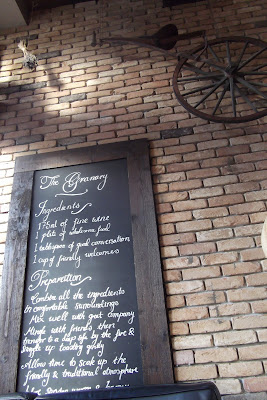 The Granery
Ingredients
175ml of fine wine
1 plate of wholesome food
1 tablespoon of good conversation
1 cup of friendly welcomes
Preparation
Combine all the ingredients
in comfortable surroundings
Mix well with good company
Mingle with friends then
transfer to a large sofa by the fire &
snuggle up toasting gently
Allow time to soak up the
friendly & traditional atmosphere